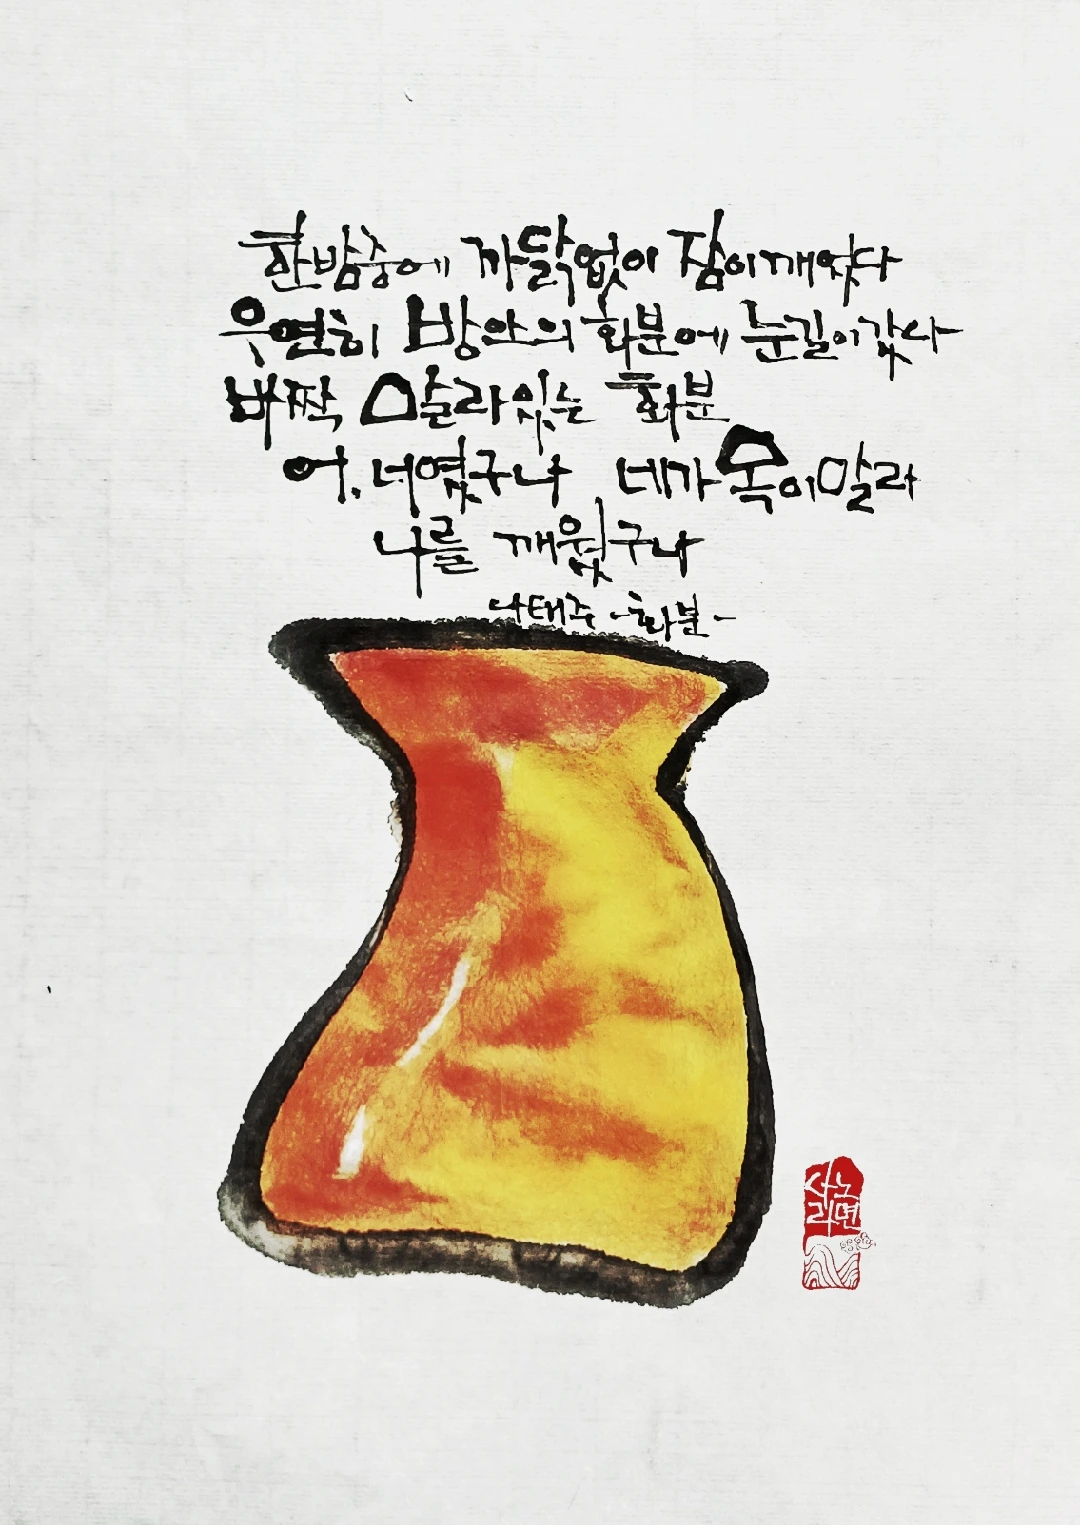 한밤중에 까닭없이 잠이깨었다
우연히 방안의 화분에 눈길이갔다
바짝 말라있는 화분
어, 너였구나 네가 목이말라
나를 깨웠구나
나태주 -화분-